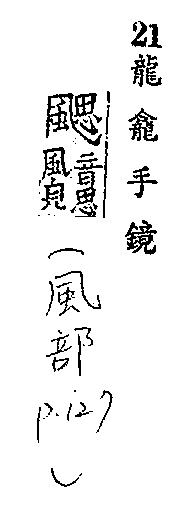 21龍龕手鏡
颸音思風皃
(風部 p.127)